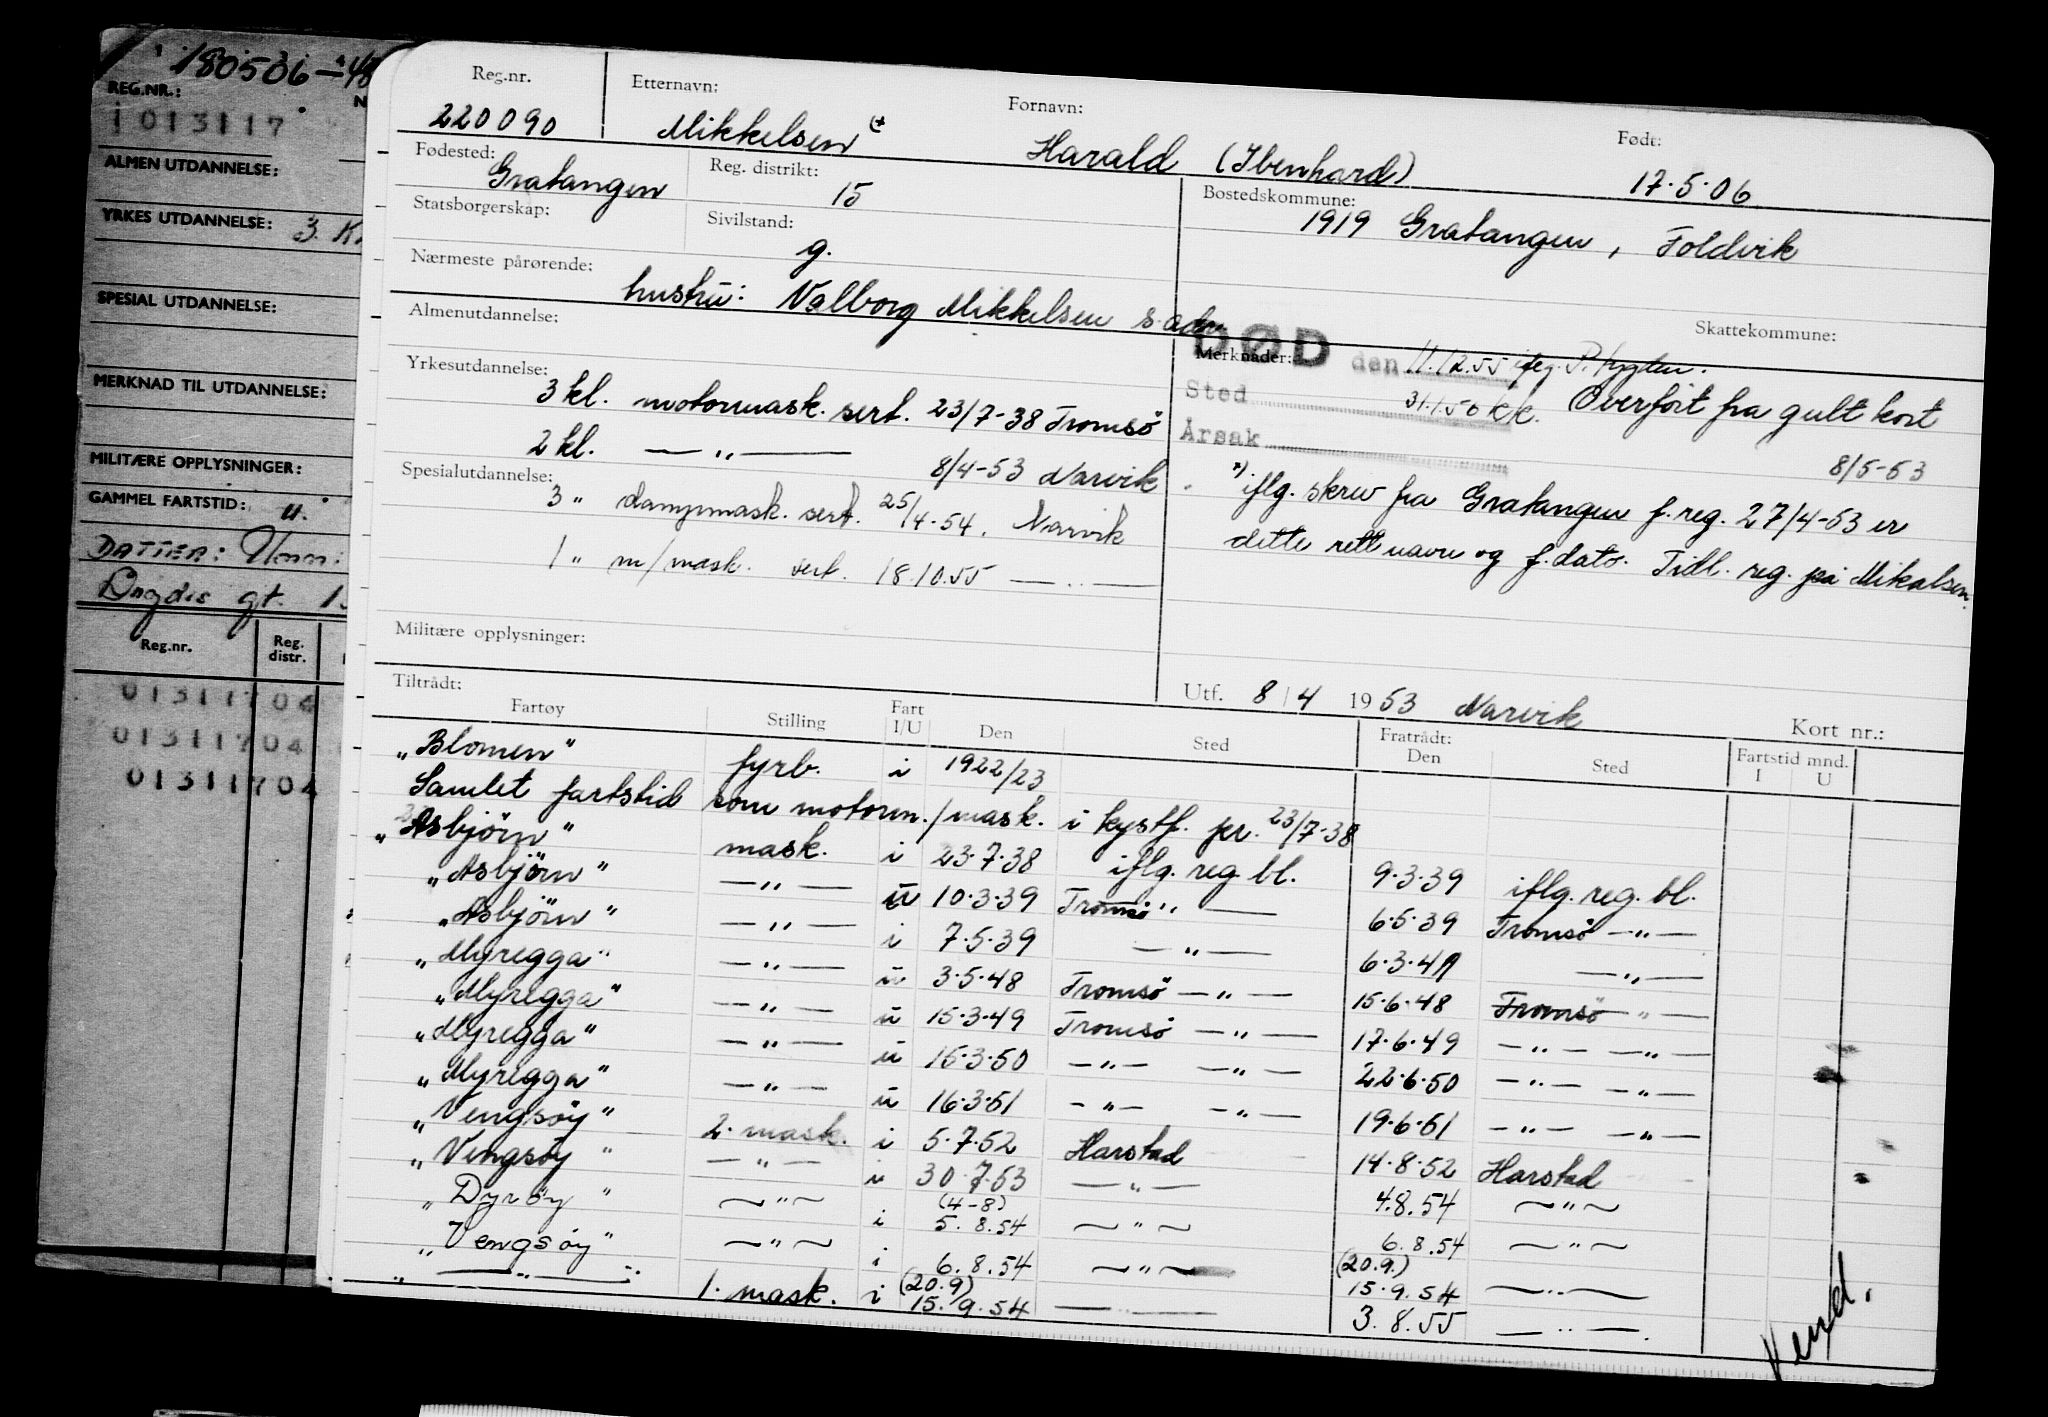 180506-48
REG.NR.:
013117
ALMEN UTDANNELSE:
YRKES UTDANNELSE: 3. K
SPESIAL UTDANNELSE:
MERKNAD TIL UTDANNELSE:
MILITÆRE OPPLYSNINGER:
GAMMEL FARTSTID: u.
DATTER:
gt. 1
Reg.nr. Reg. distr.
01311704
01311704
01311704
Reg.nr. Etternavn: Fornavn: Født:
220090 Mikkelsen Harald (Ibenhard) 17.5.06
Fødested: Reg. distrikt: Bostedskommune:
Gratangen 15 1919 Gratangen, Foldvik
Statsborgerskap: Sivilstand:
g.
Nærmeste pårørende:
hustru: Valborg Mikkelsen s. adr.
Almenutdannelse: Skattekommune:
Merknader: DØD den 11.12.55 iflg.
Sted 31.1.56 kk. Overfört fra gult kort
Årsak 8/5-53
Yrkesutdannelse:
3 kl. motormask. sert. 23/7-38 Tromsö
2 kl. —„— 8/4-53 Narvik
Spesialutdannelse:
3 „ dampmask. sert. 25/4-54. Narvik
1 „ m/mask. sert. 18.10.55 —„—
*) iflg. skriv fra Gratangen f.reg. 27/4-53 er
dette rett navn og f.dato. Tidl. reg. på Mikalsen.
Militære opplysninger:
Utf. 8/4 1953 Narvik Kort nr.:
Tiltrådt: Fratrådt: Fartstid mnd.
Fartøy Stilling Fart I/U Den Sted Den Sted I U
„Blomen" fyrb. i 1922/23
Samlet fartstid som motorm./mask. i kystf. pr. 23/7-38
„Asbjörn" mask. i 23.7.38 iflg. reg. bl. 9.3.39 iflg. reg. bl.
„Asbjörn" —„— u 10.3.39 Tromsö —„— 6.5.39 Tromsö —„—
„Asbjörn" —„— i 7.5.39 —„— 6.3.41 —„—
„Myregga" —„— u 3.5.48 Tromsö —„— 15.6.48 Tromsö —„—
„Myregga" —„— u 15.3.49 Tromsö —„— 17.6.49 —„— —„—
„Myregga" —„— u 16.3.50 —„— —„— 22.6.50 —„— —„—
„Myregga" —„— u 16.3.51 —„— —„— 19.6.51 —„— —„—
„Vengsöy" 2. mask. i 5.7.52 Harstad 14.8.52 Harstad
„Vengsöy" —„— u 30.7.53 —„— 4.8.54 —„—
„Dyröy" —„— i (4-8) 5.8.54 —„— 6.8.54 —„—
„Vengsöy" —„— i 6.8.54 —„— (20.9.) 15.9.54 —„—
„—„—" 1. mask. i (20.9) 15.9.54 —„— 3.8.55 —„—
Vend.